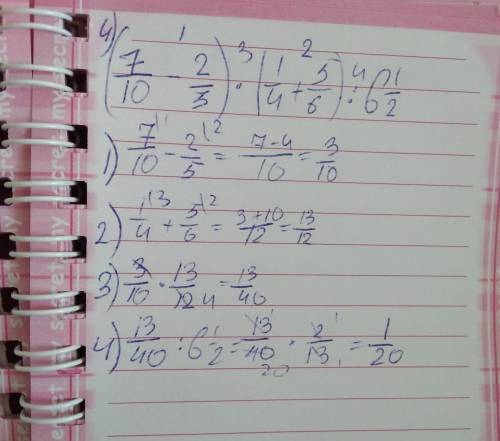 4) (7/10 - 2/5) · (1/4 + 5/6) : 6 1/2
1) 7/10 - 2/5 = 7-4/10 = 3/10
2) 1/4 + 5/6 = 3+10/12 = 13/12
3) 3/10 · 13/12 = 13/40
4) 13/40 : 6 1/2 = 13/40 · 2/13 = 1/20
my secret
my secret
my secret